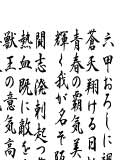 六甲おろしに
蒼天翔ける日
青春の覇気美
輝く我が名ぞ
闘志溌剌起つ
熱血既に敵を
獣王の意気高